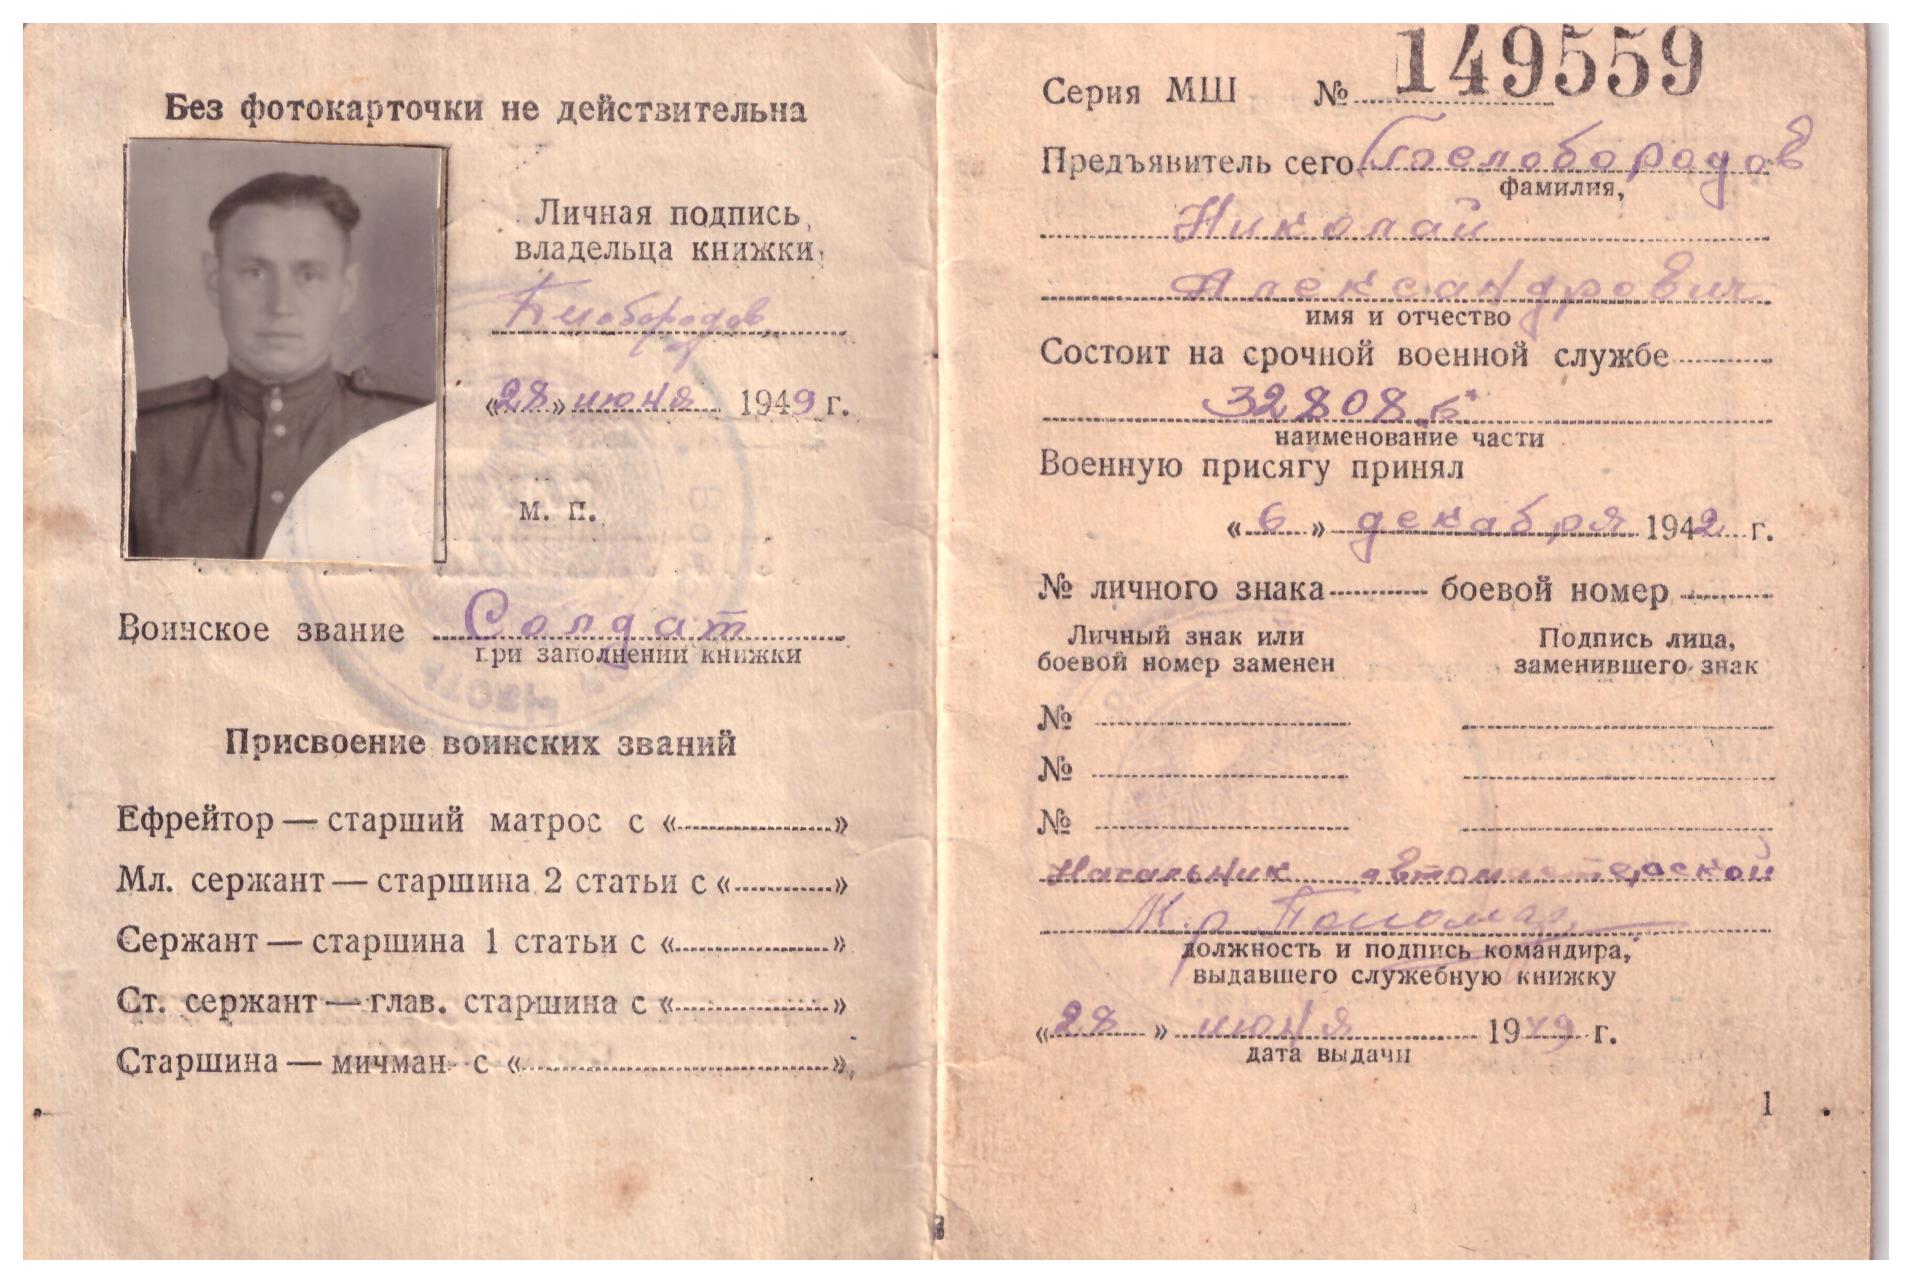 Без фотокарточки не действительна
Личная подпись
владельца книжки
Белобородов
«28» июня 1949 г.
м. п.
Воинское звание Солдат
при заполнении книжки
Присвоение воинских званий
Ефрейтор — старший матрос с « »
Мл. сержант — старшина 2 статьи с « »
Сержант — старшина 1 статьи с « »
Ст. сержант — глав. старшина с « »
Старшина — мичман с « »
Серия МШ № 149559
Предъявитель сего Белобородов
фамилия,
Николай
Александрович
имя и отчество
Состоит на срочной военной службе
32808
наименование части
Военную присягу принял
«6» декабря 1942 г.
№ личного знака боевой номер
Личный знак или
боевой номер заменен
Подпись лица,
заменившего знак
№
№
№
Начальник автомастерской
должность и подпись командира,
выдавшего служебную книжку
«28» июня 1949 г.
дата выдачи
1